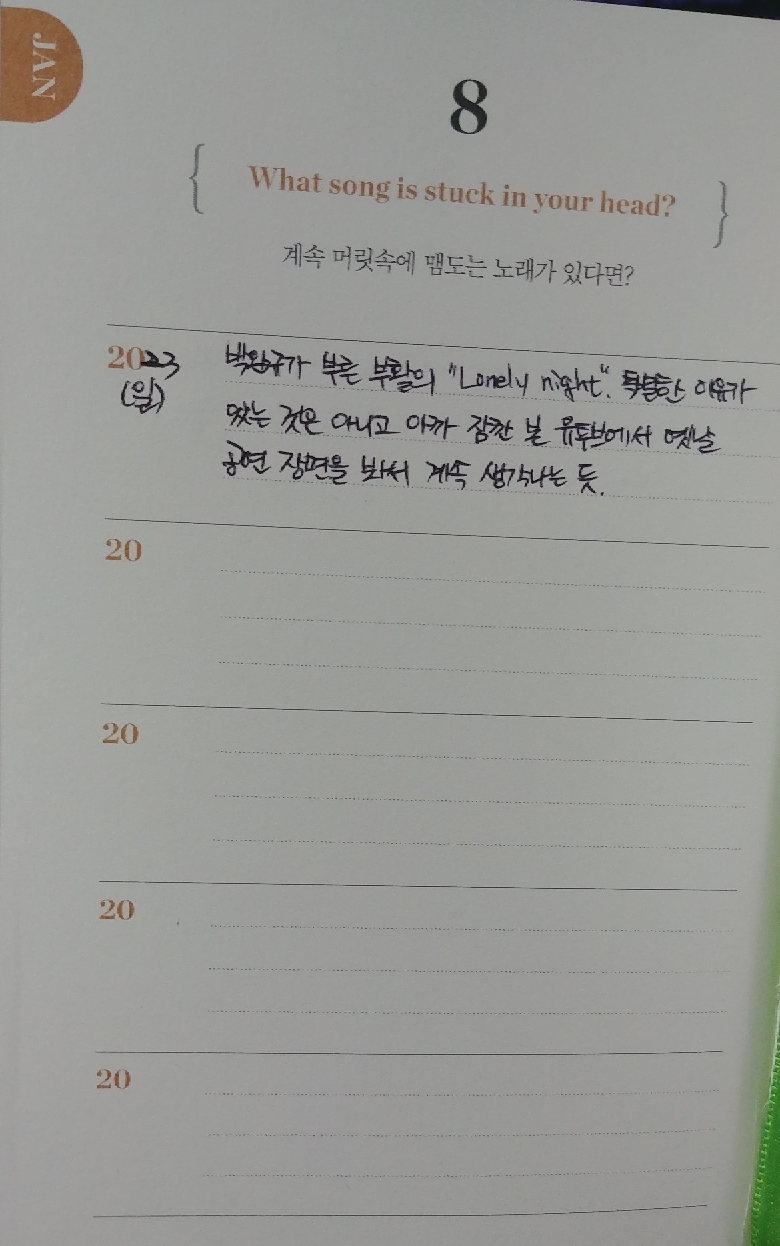 JAN
8
{ What song is stuck in your head? }
계속 머릿속에 맴도는 노래가 있다면?
2023 박완규가 부른 부활의 "Lonely night". 특별한 이유가
(일) 있는 것은 아니고 아까 잠깐 본 유튜브에서 옛날
공연 장면을 봐서 계속 생각나는 듯.
20
20
20
20